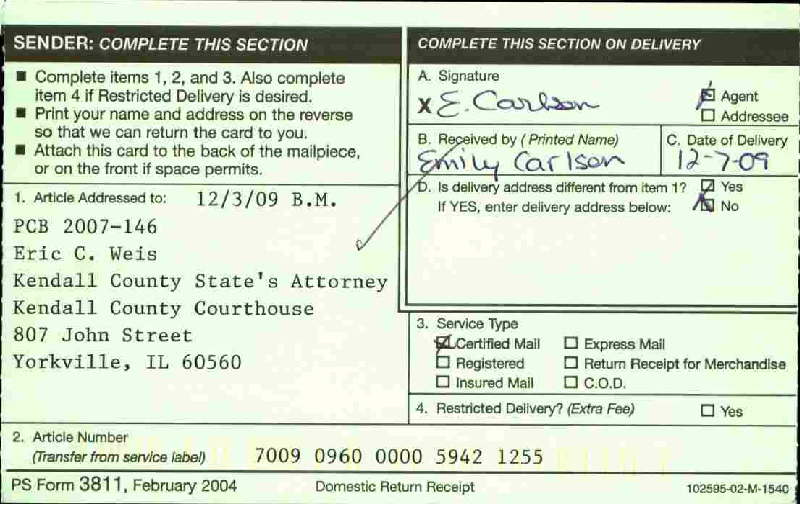 SENDER: COMPLETE THIS SECTION
■ Complete items 1, 2, and 3. Also complete
item 4 if Restricted Delivery is desired.
■ Print your name and address on the reverse
so that we can return the card to you.
■ Attach this card to the back of the mailpiece,
or on the front if space permits.
1. Article Addressed to: 12/3/09 B.M.
PCB 2007-146
Eric C. Weis
Kendall County State's Attorney
Kendall County Courthouse
807 John Street
Yorkville, IL 60560
COMPLETE THIS SECTION ON DELIVERY
A. Signature
X E. Carlson
☑ Agent
☐ Addressee
B. Received by (Printed Name)
Emily Carlson
C. Date of Delivery
12-7-09
D. Is delivery address different from item 1? ☑ Yes
If YES, enter delivery address below: ☑ No
3. Service Type
☑ Certified Mail ☐ Express Mail
☐ Registered ☐ Return Receipt for Merchandise
☐ Insured Mail ☐ C.O.D.
4. Restricted Delivery? (Extra Fee) ☐ Yes
2. Article Number
(Transfer from service label) 7009 0960 0000 5942 1255
PS Form 3811, February 2004 Domestic Return Receipt 102595-02-M-1540